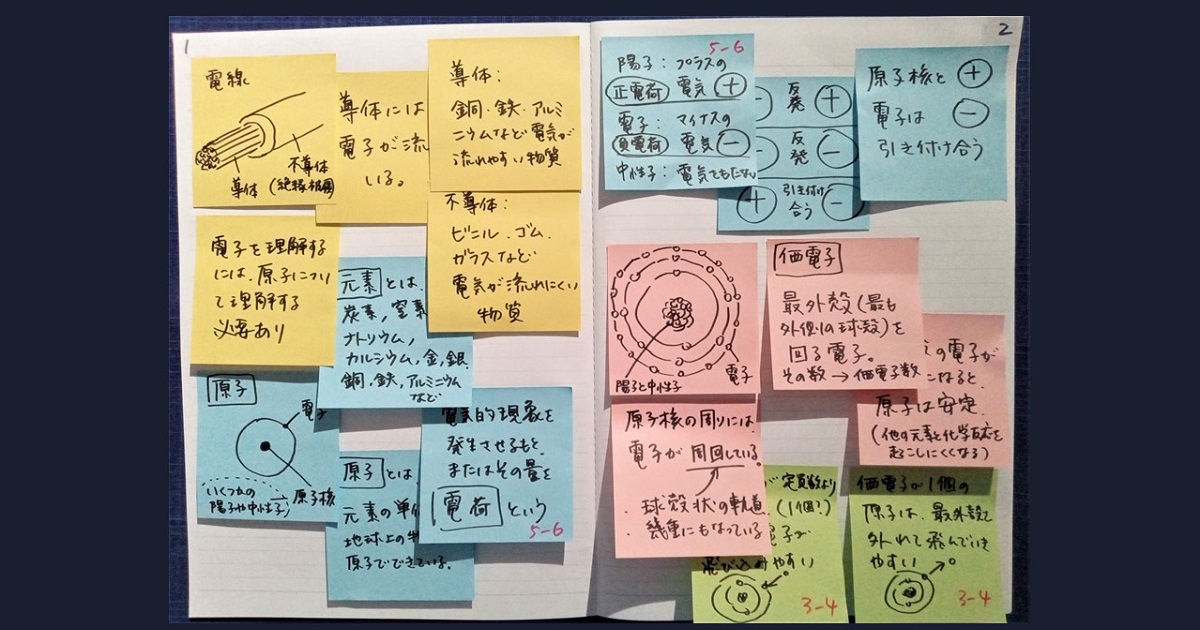 1
電線
不導体
(絶縁被
導体
導体には
電子が流
いる。
導体:
銅・鉄・アルミ
ニウムなど電気が
流れやすい物質
不導体:
ビニル、ゴム、
ガラスなど
電気が流れにくい
物質
電子を理解する
には、原子につい
て理解する
必要あり
元素とは、
炭素,窒素
ナトリウム,
カルシウム,金,銀
銅,鉄,アルミニウム
など
原子
電子
原子核
いくつかの
陽子や中性子
原子とは
元素の単
地球上の
原子でできている。
電気的現象を
発生させるもと、
またはその量を
電荷という
5-6
2
5-6
陽子:プラスの
正電荷 電気 +
電子:マイナスの
負電荷 電気 −
中性子:電気をもたない
反発 +
反発 −
+ 引き付け合う −
原子核と +
電子は −
引き付け合う
電子
陽子と中性子
価電子
最外殻(最も
外側の球殻)を
回る電子。
その数→価電子数
の電子が
なると、
原子は安定
(他の元素と化学反応を
起こしにくくなる)
原子核の周りには、
電子が周回している。
球殻状の軌道
幾重にもなっている
が定員数より
(1個?)
電子が
飛び込みやすい
3-4
価電子が1個の
原子は、最外殻
外れて飛んでいき
やすい
3-4